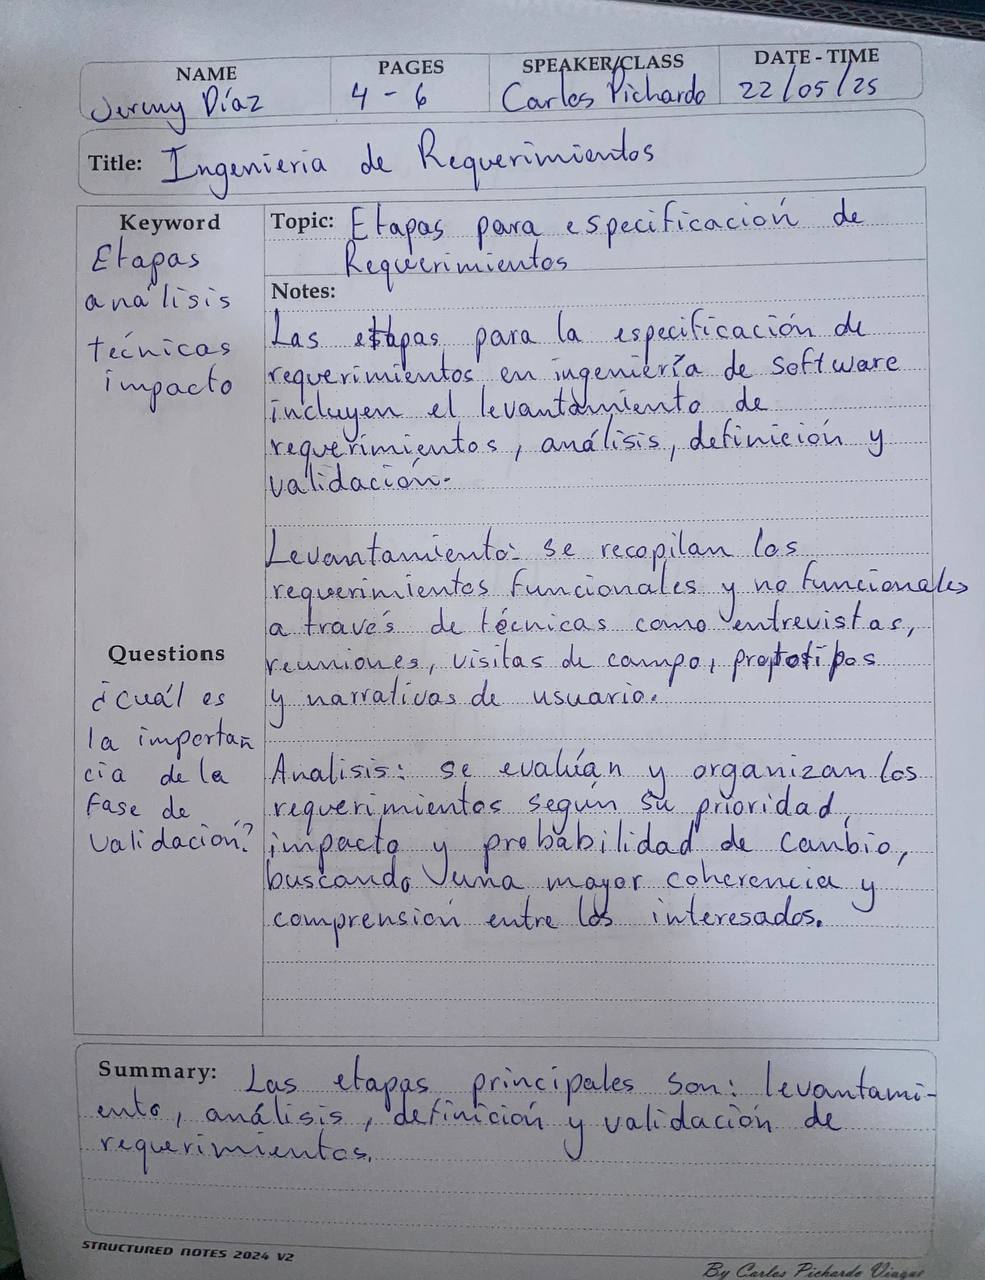 NAME PAGES SPEAKER/CLASS DATE - TIME
Jeremy Díaz 4 - 6 Carlos Pichardo 22/05/25
Title: Ingenieria de Requerimientos
Keyword
Etapas
análisis
técnicas
impacto
Questions
¿cuál es
la importan
cia de la
fase de
validación?
Topic: Etapas para especificación de
Requerimientos
Notes:
Las etapas para la especificación de
requerimientos en ingeniería de software
incluyen el levantamiento de
requerimientos, análisis, definición y
validación.
Levantamiento: se recopilan los
requerimientos funcionales y no funcionales
a través de técnicas como entrevistas,
reuniones, visitas de campo, prototipos
y narrativas de usuario.
Analisis: se evalúan y organizan los
requerimientos según su prioridad,
impacto y probabilidad de cambio,
buscando una mayor coherencia y
comprensión entre los interesados.
Summary: Las etapas principales son: levantami-
ento, análisis, definición y validación de
requerimientos.
STRUCTURED NOTES 2024 V2
By Carlos Pichardo Viuque